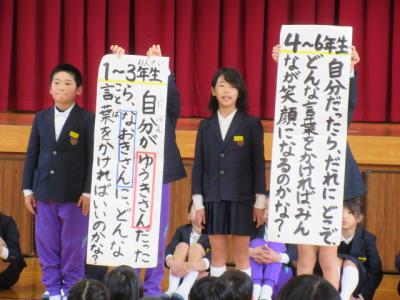 4～6年生
自分だったらだれに、どこで、
どんな言葉をかければみん
なが笑顔になるのかな？
1～3年生
ねんせい
自分がゆうきさんだった
じぶん
ら、なおきさんに、どんな
言葉をかければいいのかな？
ことば